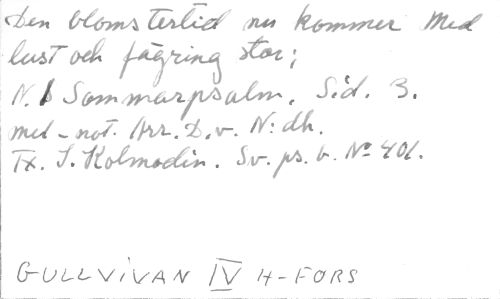 Den blomstertid nu kommer Med
lust och fägring stor;
N. 1 Sommarpsalm. Sid. 3.
mel-not. Arr. D. v. N: dh.
Tx. I. Kolmodin. Sv. ps. b. Nº 401.
GULLVIVAN IV H-FORS